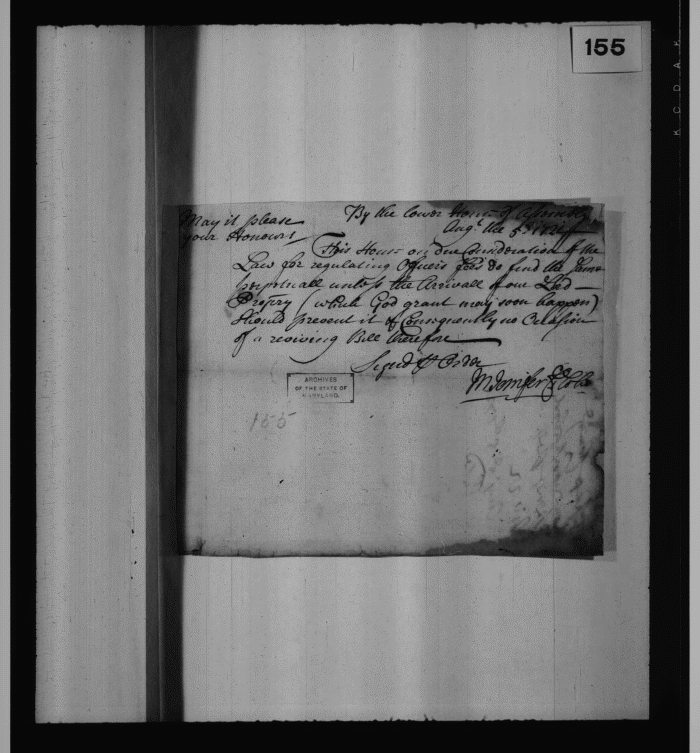 155
KODAK
By the lower House of Assembly
May it please
your Honours
Augt. the 5th
This House on due Consideration of the
Law for regulating Officers fees do find the same
perpetuall unless the Arrivall of our Lord
Propry (which God grant may soon happen)
Should prevent it & Consequently no Occasion
of a reviving Bill therefore
Signed P Order
MJenifer Cl
ARCHIVES
OF THE STATE OF
MARYLAND
155